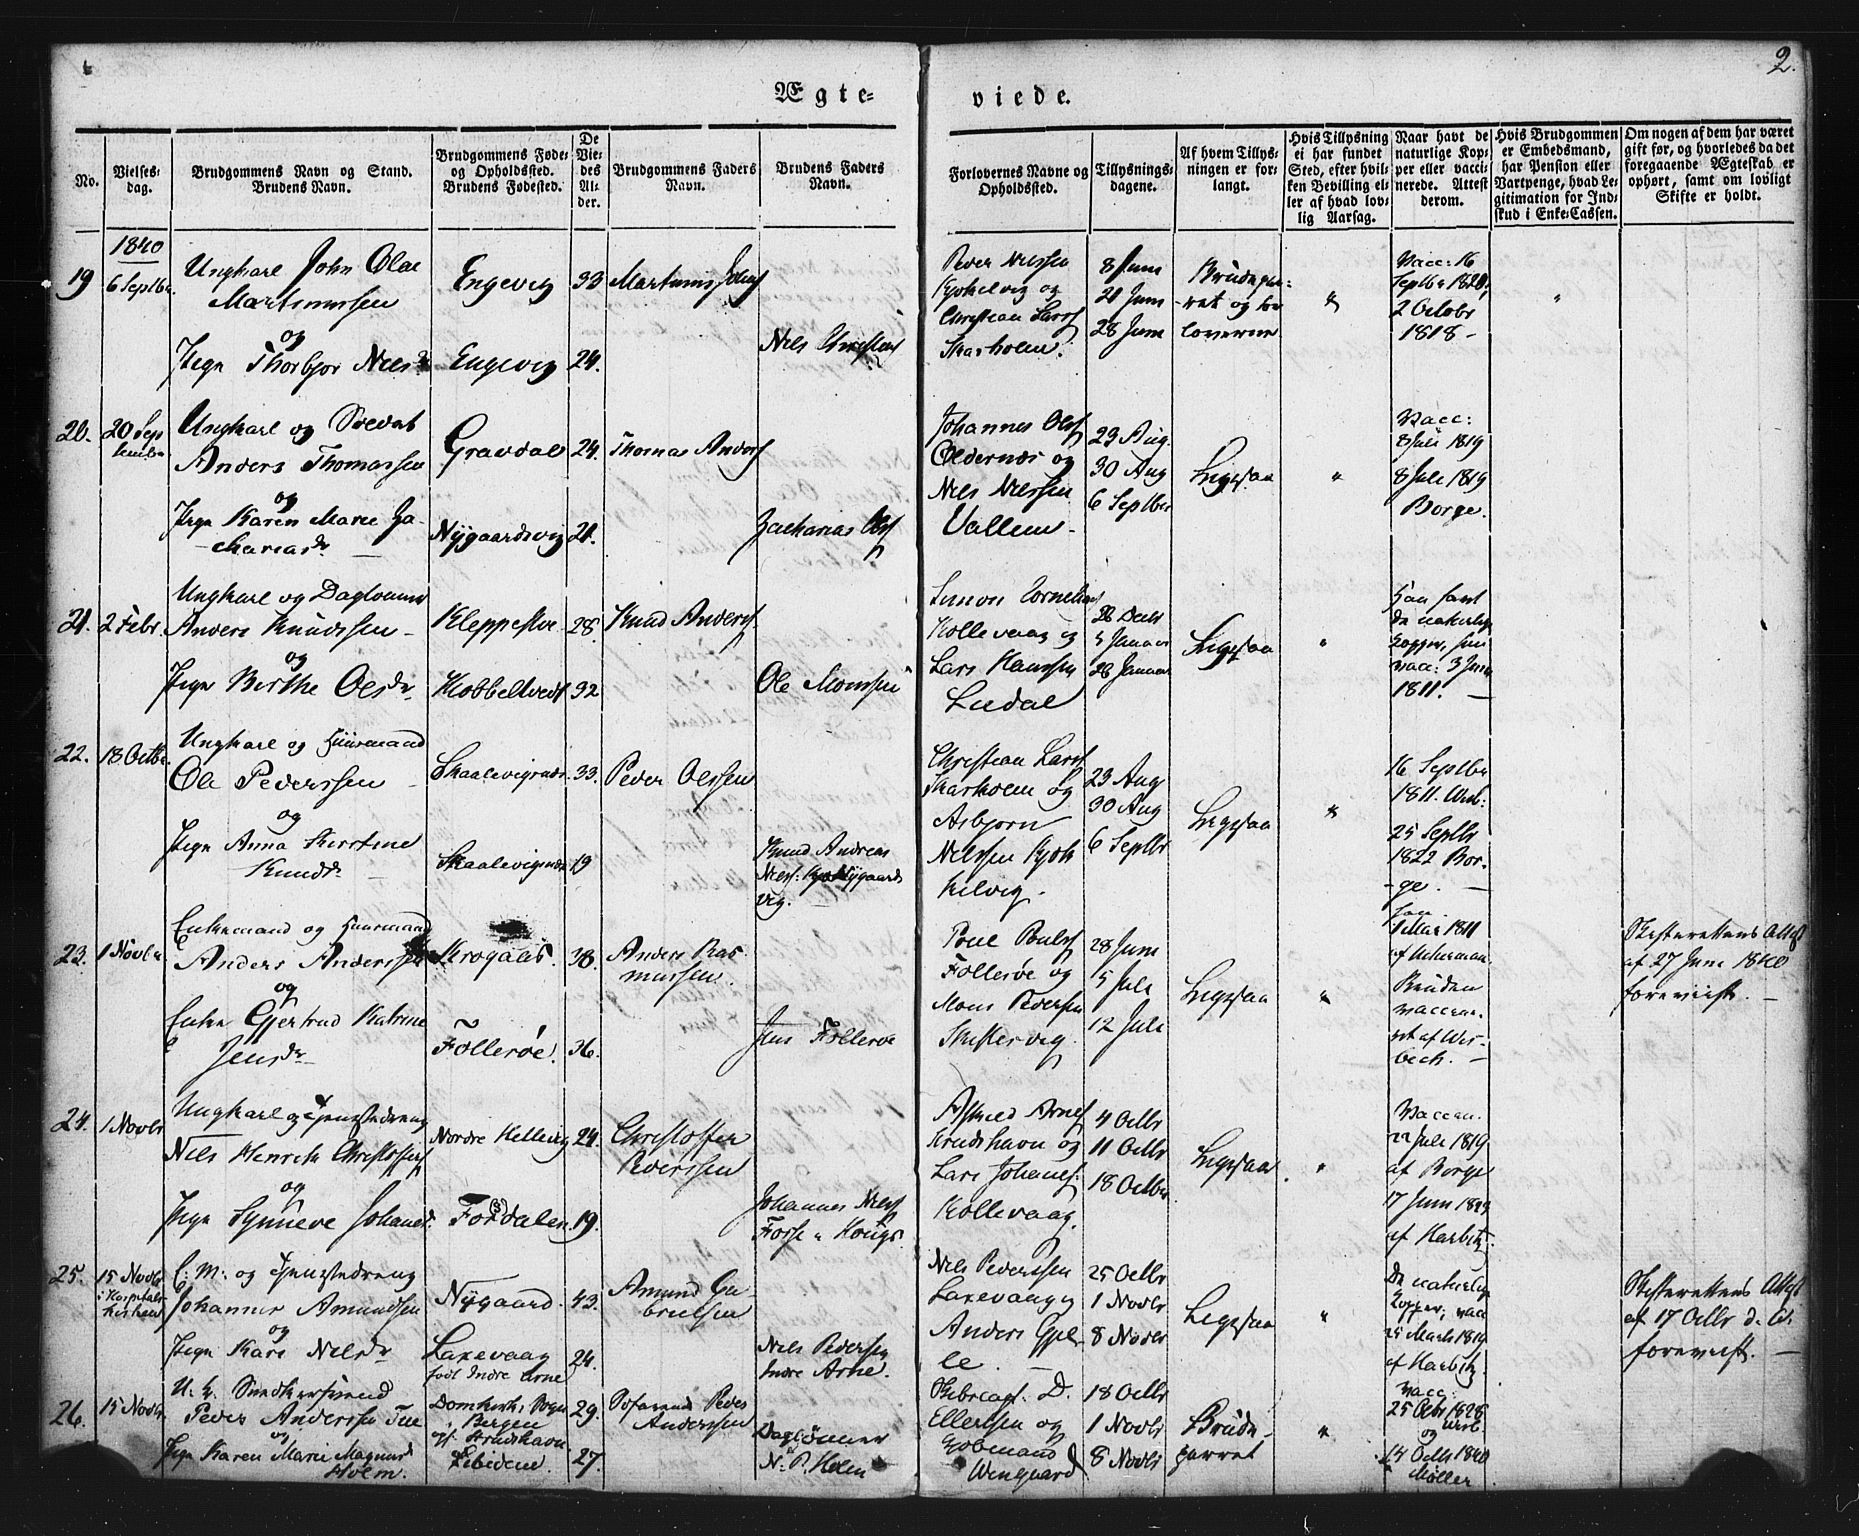 2.
Ægte-
viede.
No.
Vielses-
dag.
Brudgommens Navn og Stand.
Brudens Navn.
Brudgommens Føde-
og Opholdssted.
Brudens Fødested.
De
Vie-
des
Al-
der.
Brudgommens Faders
Navn.
Brudens Faders
Navn.
Forlovernes Navne og
Opholdssted.
Tillysnings-
dagene.
Af hvem Tillys-
ningen er for-
langt.
Hvis Tillysning
ei har fundet
Sted, efter hvil-
ken Bevilling el-
ler af hvad lov-
lig Aarsag.
Naar havt de
naturlige Kop-
per eller vacci-
nerede. Attest
derom.
Hvis Brudgommen
er Embedsmand,
har Pension eller
Vartpenge, hvad Le-
gitimation for Ind-
skud i Enke-Cassen.
Om nogen af dem har været
gift før, og hvorledes da det
foregaaende Ægteskab er
ophørt, samt om lovligt
Skifte er holdt.
1840
19
6 Septbr.
Ungkarl John Olai
Martinussen
og
Pige Thorbjør Nielsdr
Engevig
Engevig
33
24.
Martinus Johns
Nils Christens
Peder Nilssen
Kjøkelvig og
Christian Larss
Skarholm.
8 Juni
21 Juni
28 Juni
Brudepar-
ret og for
loverne
"
Vacc: 16
Septbr 1820,
2 Octobr
1818 -
"
20.
20 Sep
tembr
Ungkarl og Soldat
Anders Thomassen
og
Pige Karen Marie Za-
chariasdr
Gravdal
Nygaardsvig
24.
21.
Thomas Anders
Zacharias Ols
Johannes Ols
Oldernæs og
Nils Nilssen
Vallem -
23 Aug.
30 Aug
6 Septbr
Ligesaa
"
Vacc:
8 Juli 1819
8 Juli 1819
Borge.
21.
2 Febr
Ungkarl og Daglønner
Anders Knudssen -
og
Pige Berthe Olsdr
Kleppestø
Kobbeltvedt
28.
32.
Knud Anders
Ole Monssen
Simon Cornelius
Kollevaag og
Lars Hanssen
Lidal
28 Decbr
5 Januar
20 Januar
Ligesaa
"
Han havt
de naturlige
Kopper, hun
vacc: 3 Juni
1811. -
22.
18 Octbr.
Ungkarl og Huusmand
Ole Pederssen
og
Pige Anna Kirstine
Knudsdr
Skaalevignæs
Skaalevignæs
33.
19
Peder Olssen
Knud Andreas
Niels: Nygaards
vig.
Christian Larss
Skarholm og
Asbjørn
Nilssen Kjøk
kelvig.
23 Aug
30 Aug
6 Septbr
Ligesaa
"
16 Septbr
1811. Wesb:
25 Septbr
1822 Bor-
-ge. -
23.
1 Novbr
Enkemand og Huusmand
Anders Anderssen
og
Enke Gjertrud Katrine
Jensdr
Krogaas.
Follerøe.
38.
36.
Anders Ras
mussen.
Jens Follerøe
Poul Pouls
Follerøe og
Mons Pedersen
Skiftesvig.
28 Juni
5 Juli
12 Juli
Ligesaa
"
han
1 Mai 1811
af Ackerman.
Bruden
vaccine-
ret af Wes-
bech. -
Skifterettens Attest
af 27 Juni 1840
foreviist. -
24.
1 Novbr
Ungkarl og Tjenestedreng
Niels Henrik Christoffers
og
Pige Synneve Johansd.
Nordre Kellevig
Fordalen
24.
19.
Christoffer
Pederssen
Johannes Niels
Forsse
Arnes
Strudshavn og
Lars Johannes:
Kollevaag.
4 Octbr
11 Octbr
18 Octbr
Ligesaa.
"
Vaccin.
22 Juli 1819
af Borge
17 Juni 1823
af Harbitz.
25.
15 Novbr
i Hospitals-
kirken
E: M: og Tjenestedreng
Johannes Amundsen
og
Pige Kari Nielsdr
Nygaard.
Laxevaag
født Indre Arne
43.
24.
Amund Ga
brielsen
Niels Pedersen
Indre Arne.
Nils Pederssen
Laxevaag og
Anders Gjel-
le. -
25 Octbr
1 Novbr
8 Novbr
Ligesaa
"
De naturlige
Kopper, vacc
25 Marts 1819
af Harbitz.
Skifterettens Attest
af 17 Octbr d. A.
foreviist. -
26.
15 Novbr
U. K.
Peder Anderssen
og
Pige Karen Marie Magnusd
Holm.
Domkirk: Sogn
i Bergen
opf. Strudshavn
29.
27.
Peder
Anderssen
Daglønner
N. P. Holm
D.
Ellertsen og
Kobmand
Wingaard
18 Octbr
1 Novbr
8 Novbr
Brude-
parret
"
vacc:
25 Octbr 1828
Wesb.
og
14 Octbr 1840
Møller